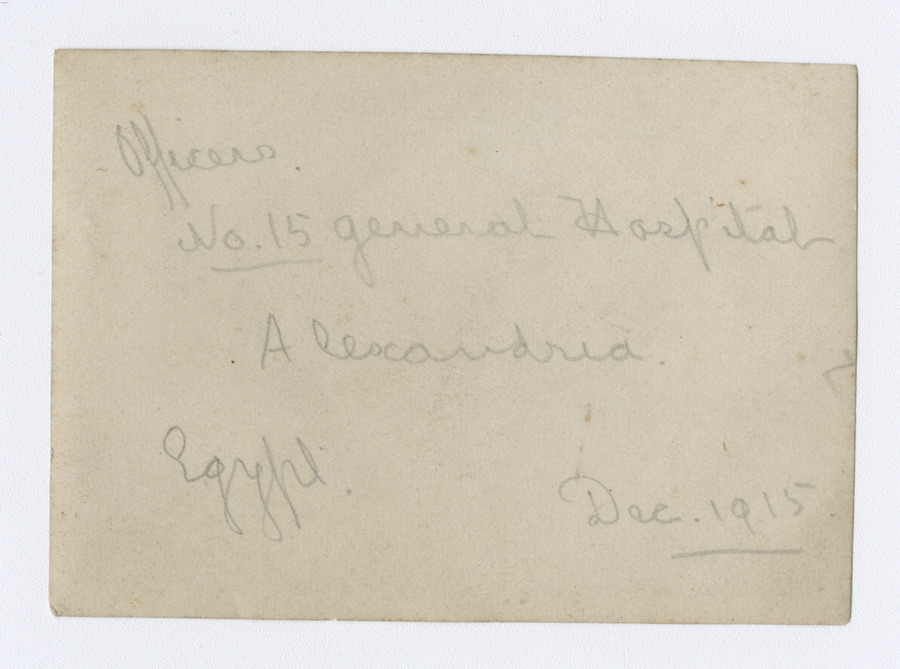 Officers.
No. 15 general Hospital
Alexandria.
Egypt.
Dec. 1915.